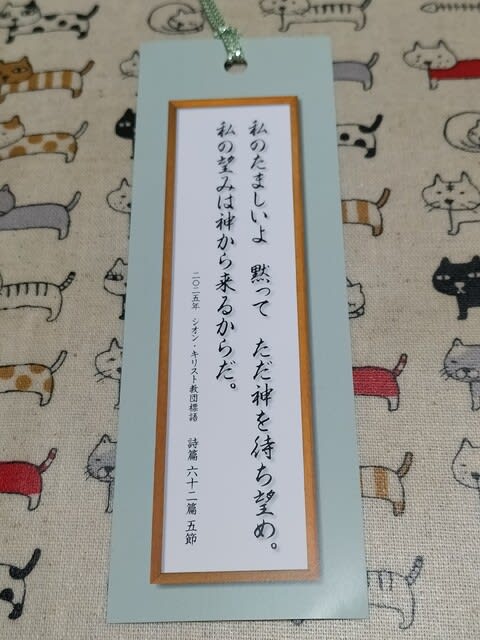 私のたましいよ　黙って　ただ神を待ち望め。
私の望みは神から来るからだ。
二〇二五年　シオン・キリスト教団標語　詩篇 六十二篇 五節